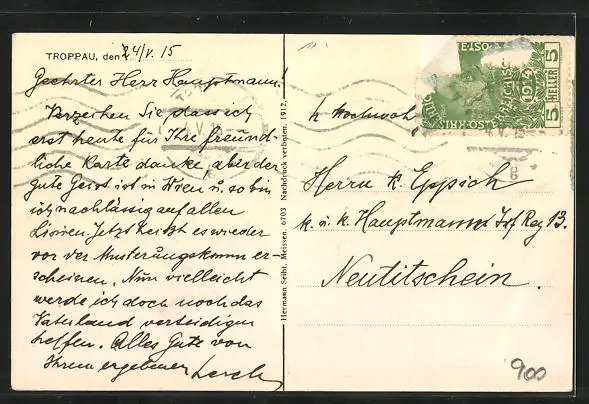 TROPPAU, den 24/V. 15
Geehrter Herr Hauptmann!
Verzeihen Sie, dass ich
erst heute für Ihre freund-
liche Karte danke, aber der
gute Geist ist in Wien u. so bin
ich nachlässig auf allen
Linien. Jetzt heißt es wieder
vor der Musterungskomm er-
scheinen. Nun vielleicht
werde ich doch noch das
Vaterland verteidigen
helfen. Alles Gute von
Ihrem ergebenen Lerch
Hermann Seibt, Meissen. 6703 Nachdruck verboten. 1912.
1914
5 HELLER 5
Herrn K. Eppich
k. u. k. Hauptmann Inf Reg 13.
Neutitschein.
900